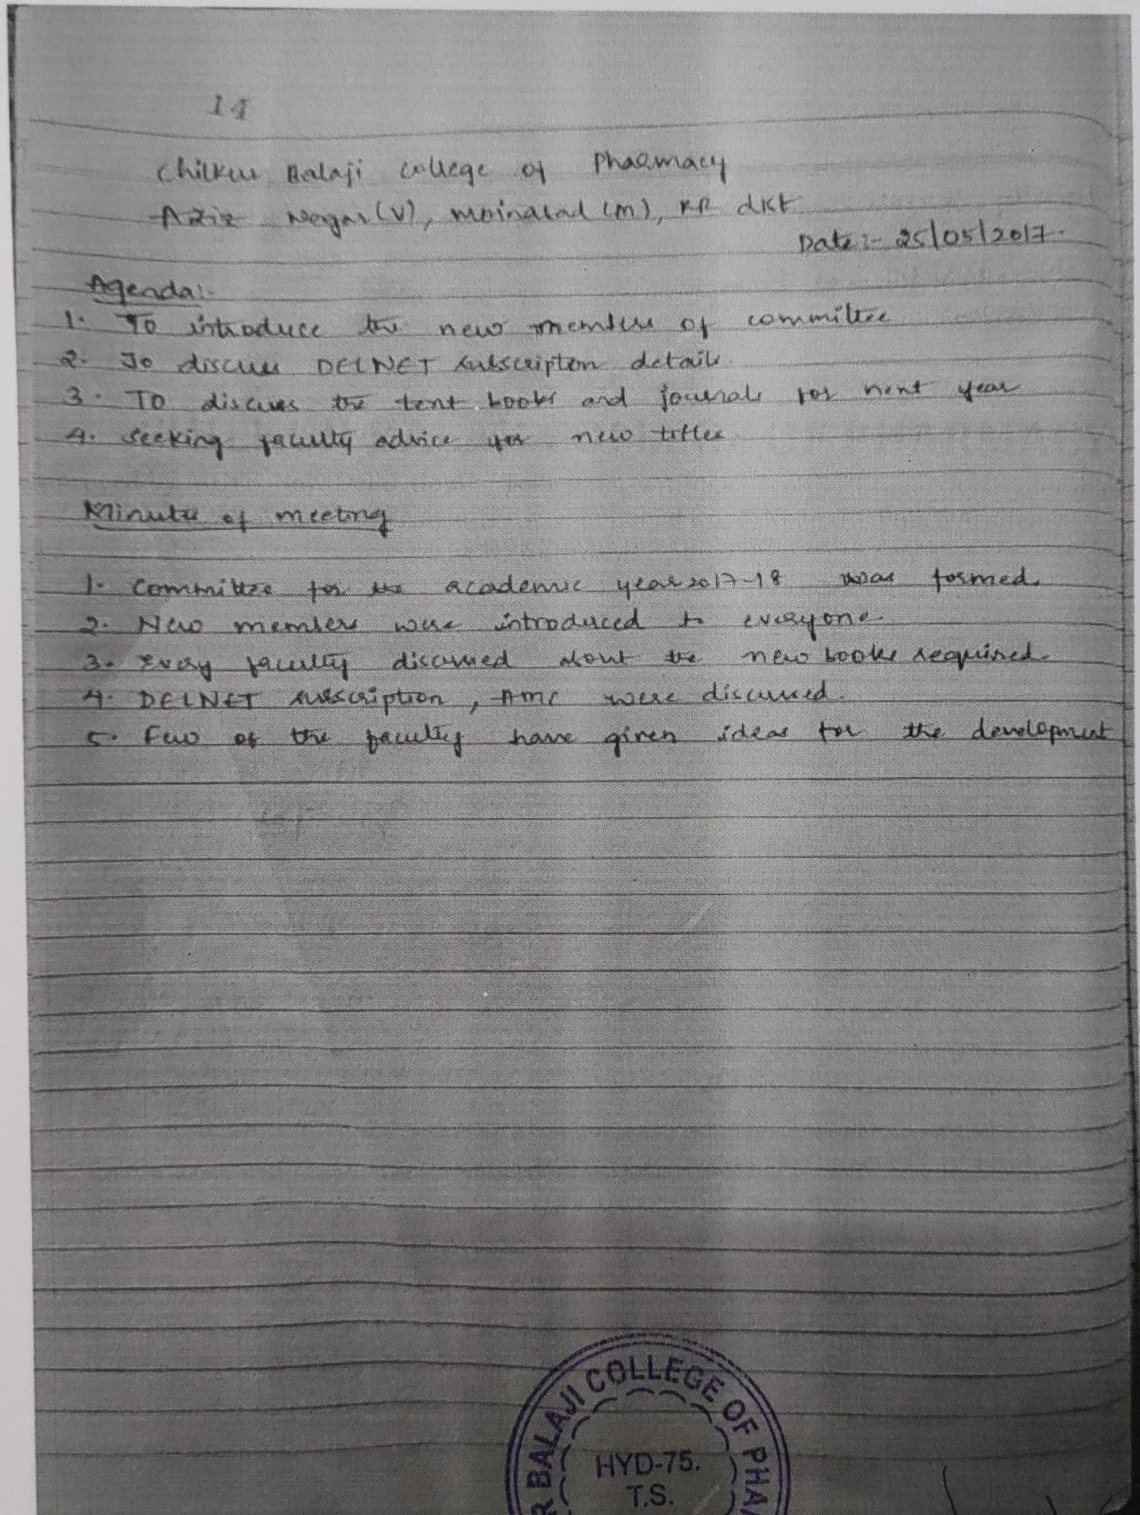 14
Chilkur Balaji College of Pharmacy
Aziz Nagar (V), Moinabad (M), RR dist
Date:- 25/05/2017.
Agenda:-
1. To introduce the new members of committee
2. To discuss DELNET subscripton details.
3. To discuss the text books and journals for next year
4. Seeking faculty advice for new titles
Minutes of meeting
1. Committee for the academic year 2017-18 was formed.
2. New members were introduced to everyone.
3. Every faculty discussed about the new books required.
4. DELNET subscription, AMC were discussed.
5. Few of the faculty have given ideas for the development
R BALAJI COLLEGE OF PHA
HYD-75.
T.S.